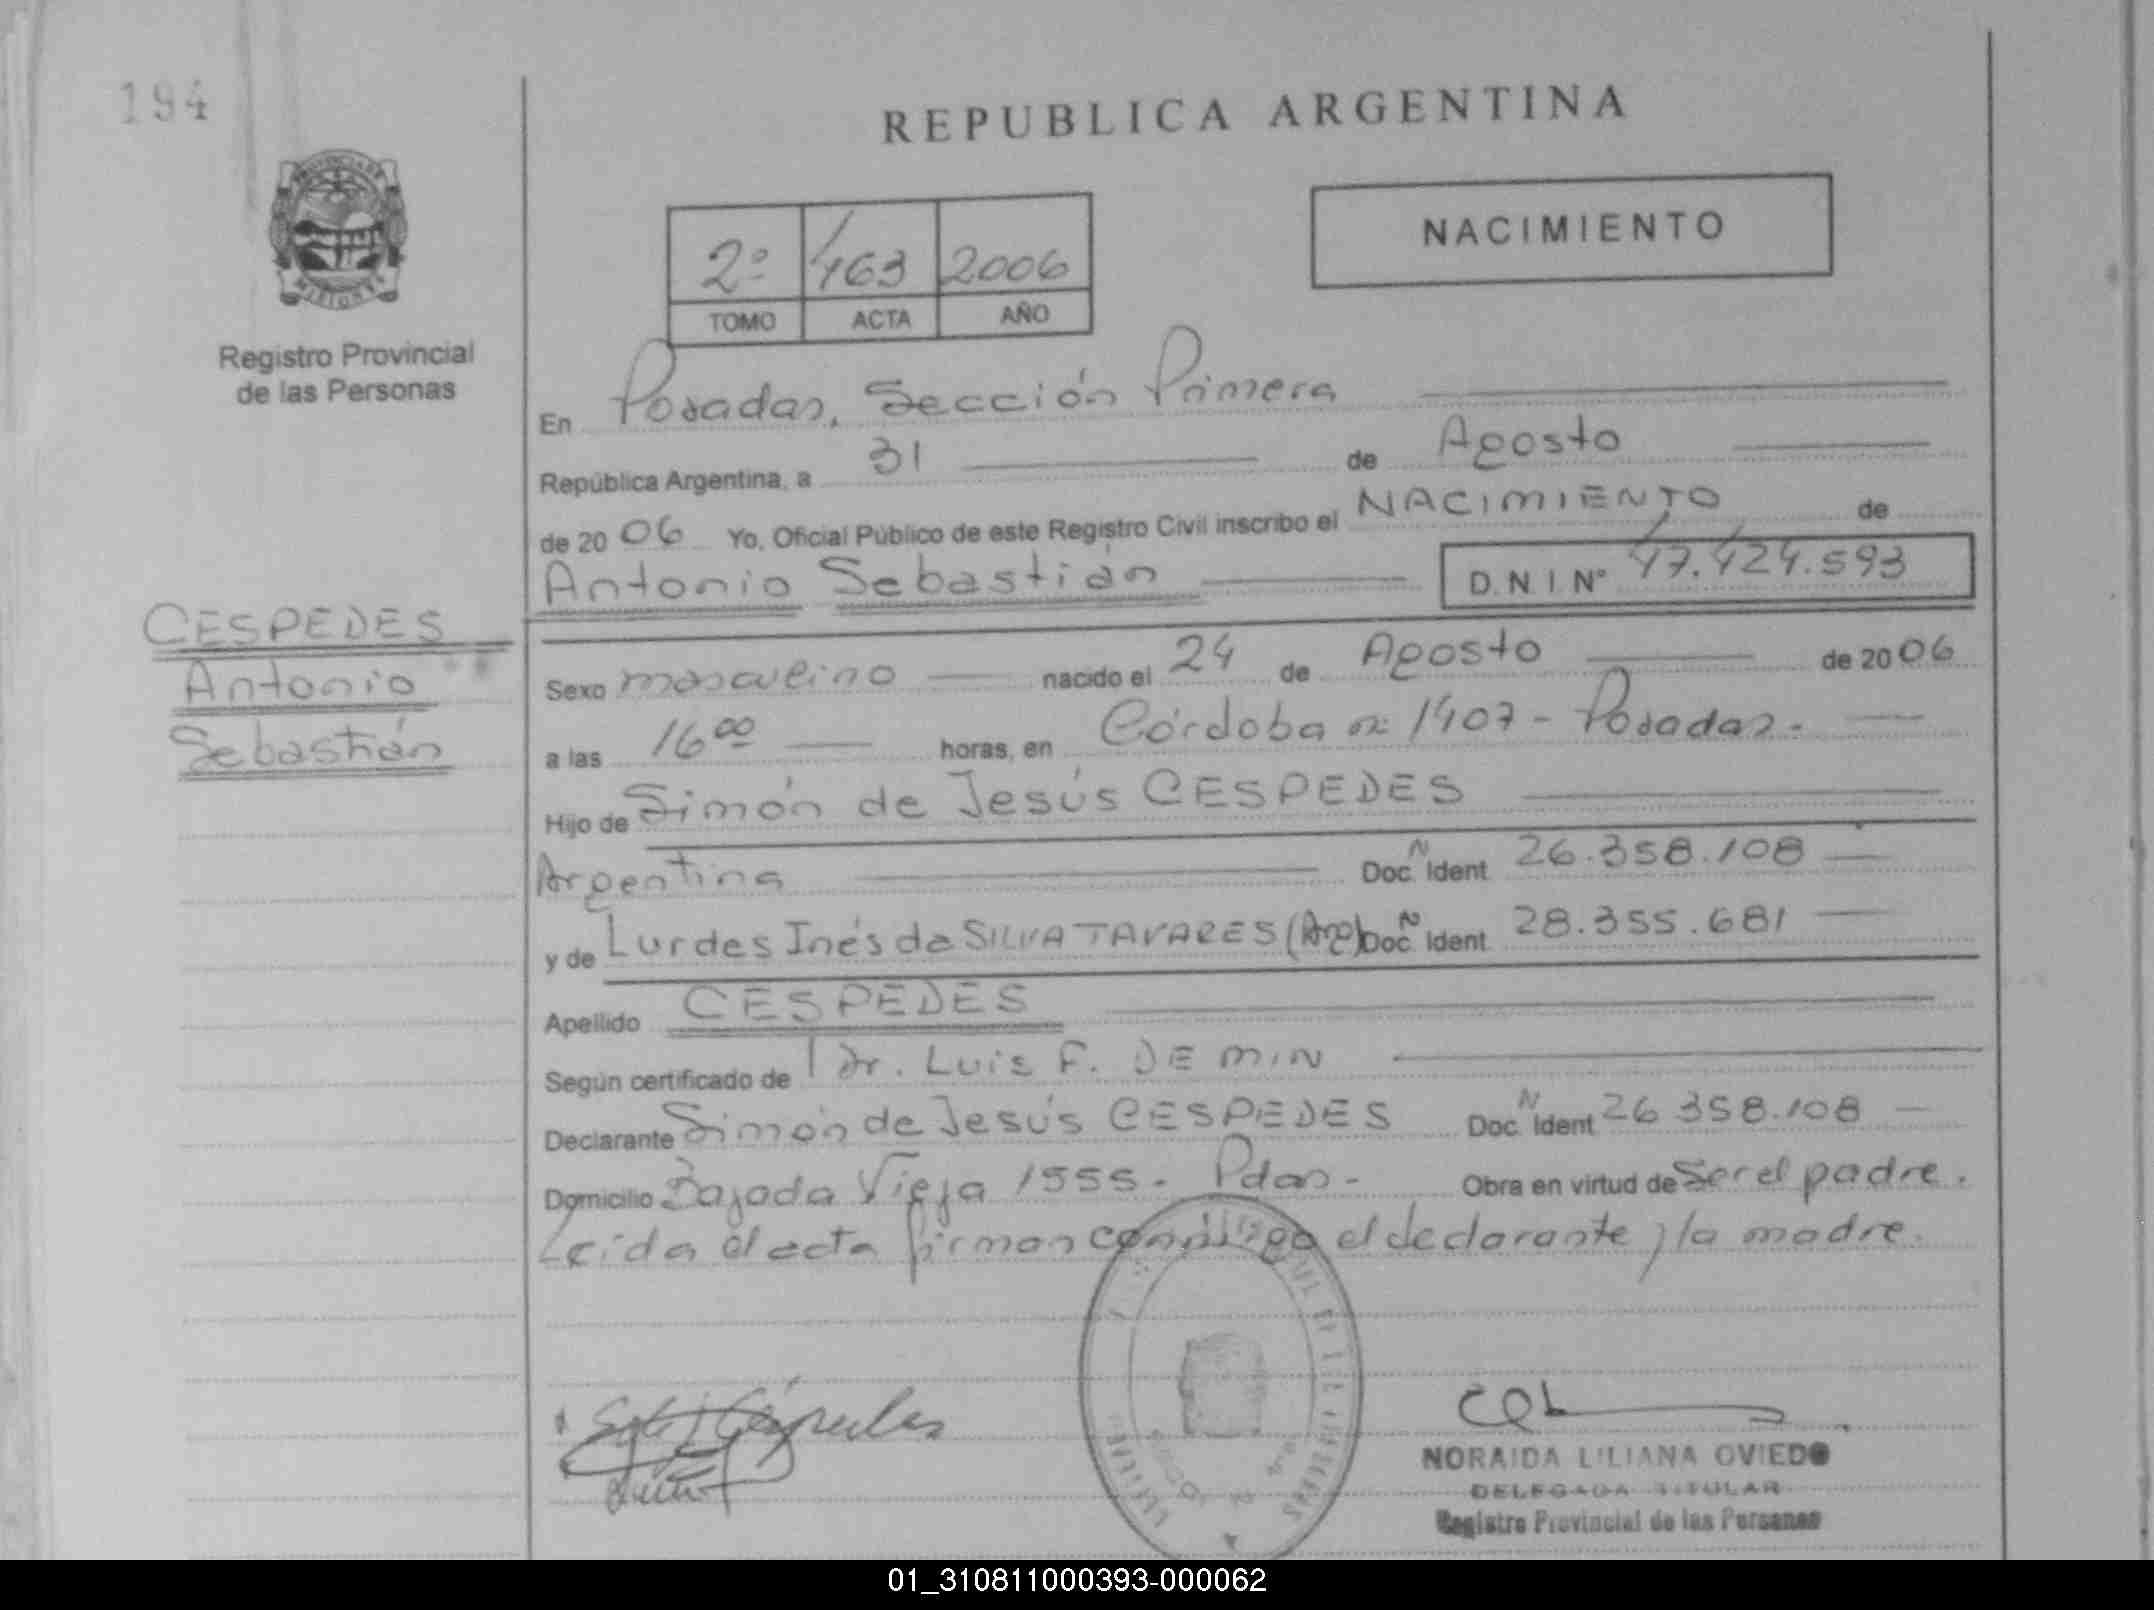 194
REPUBLICA ARGENTINA
NACIMIENTO
2º 463 2006
TOMO ACTA AÑO
Registro Provincial
de las Personas
En Posadas, Sección Primera
República Argentina, a 31 de Agosto
de 2006 Yo, Oficial Público de este Registro Civil inscribo el NACIMIENTO de
Antonio Sebastián D.N.I. Nº 47.424.593
CESPEDES
Antonio
Sebastián
Sexo masculino nacido el 24 de Agosto de 2006
a las 16 00 horas, en Córdoba nº 1407 - Posadas.
Hijo de Simón de Jesús CESPEDES
Argentina Doc. N Ident 26.358.108
y de Lurdes Inés da SILVA TAVARES (Arg) Doc. N Ident. 28.355.681
Apellido CESPEDES
Según certificado de Dr. Luis F. DE MIN
Declarante Simón de Jesús CESPEDES Doc. N Ident 26.358.108
Domicilio Bajada Vieja 1555. Pdas. Obra en virtud de Ser el padre.
Leída el acta firman conmigo el declarante y la madre.
NORAIDA LILIANA OVIEDO
DELEGADA TITULAR
Registro Provincial de las Personas
01_310811000393-000062